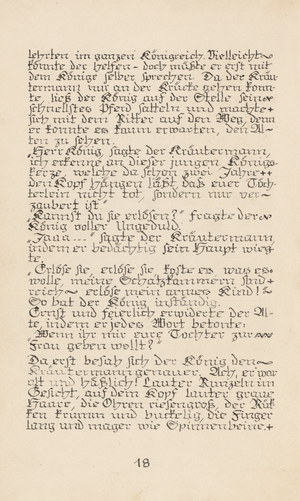 lehrten im ganzen Königreich. Vielleicht~
könnte der helfen – doch müßte er erst mit
dem Könige selber sprechen. Da der Kräu=
termann nur an der Krücke gehen konn=
te, ließ der König auf der Stelle sein
schnellstes Pferd satteln und machte+
sich mit dem Ritter auf den Weg, denn
er konnte es kaum erwarten, den Al=
ten zu sehen.
„Herr König, sagte der Kräutermann,
ich erkenne an dieser jungen Königs=
kerze, welche da schon zwei Jahre++
den Kopf hängen läßt, daß euer Töch=
terlein nicht tot, sondern nur ver=
zaubert ist“
„Kannst du sie erlösen?“ fragte der~
König voller Ungeduld.
„Jaaa...“ sagte der Kräutermann,
indem er bedächtig sein Haupt wieg=
te.
„Erlöse sie, erlöse sie, koste es was es~
wolle, meine Schatzkammern sind+
reich~ erlöse mein armes Kind!~
So bat der König inständig.
Ernst und feierlich erwiderte der Al=
te, indem er jedes Wort betonte:
„Wenn ihr mir eure Tochter zur~
Frau geben wollt?“
Da erst besah sich der König den~
Kräutermann genauer. Ach, er war
alt und häßlich! Lauter Runzeln im
Gesicht, auf dem Kopf lauter graue
Haare, die Ohren riesengroß, der Rük=
ken krumm und buckelig, die Finger
lang und mager wie Spinnenbeine.+
18